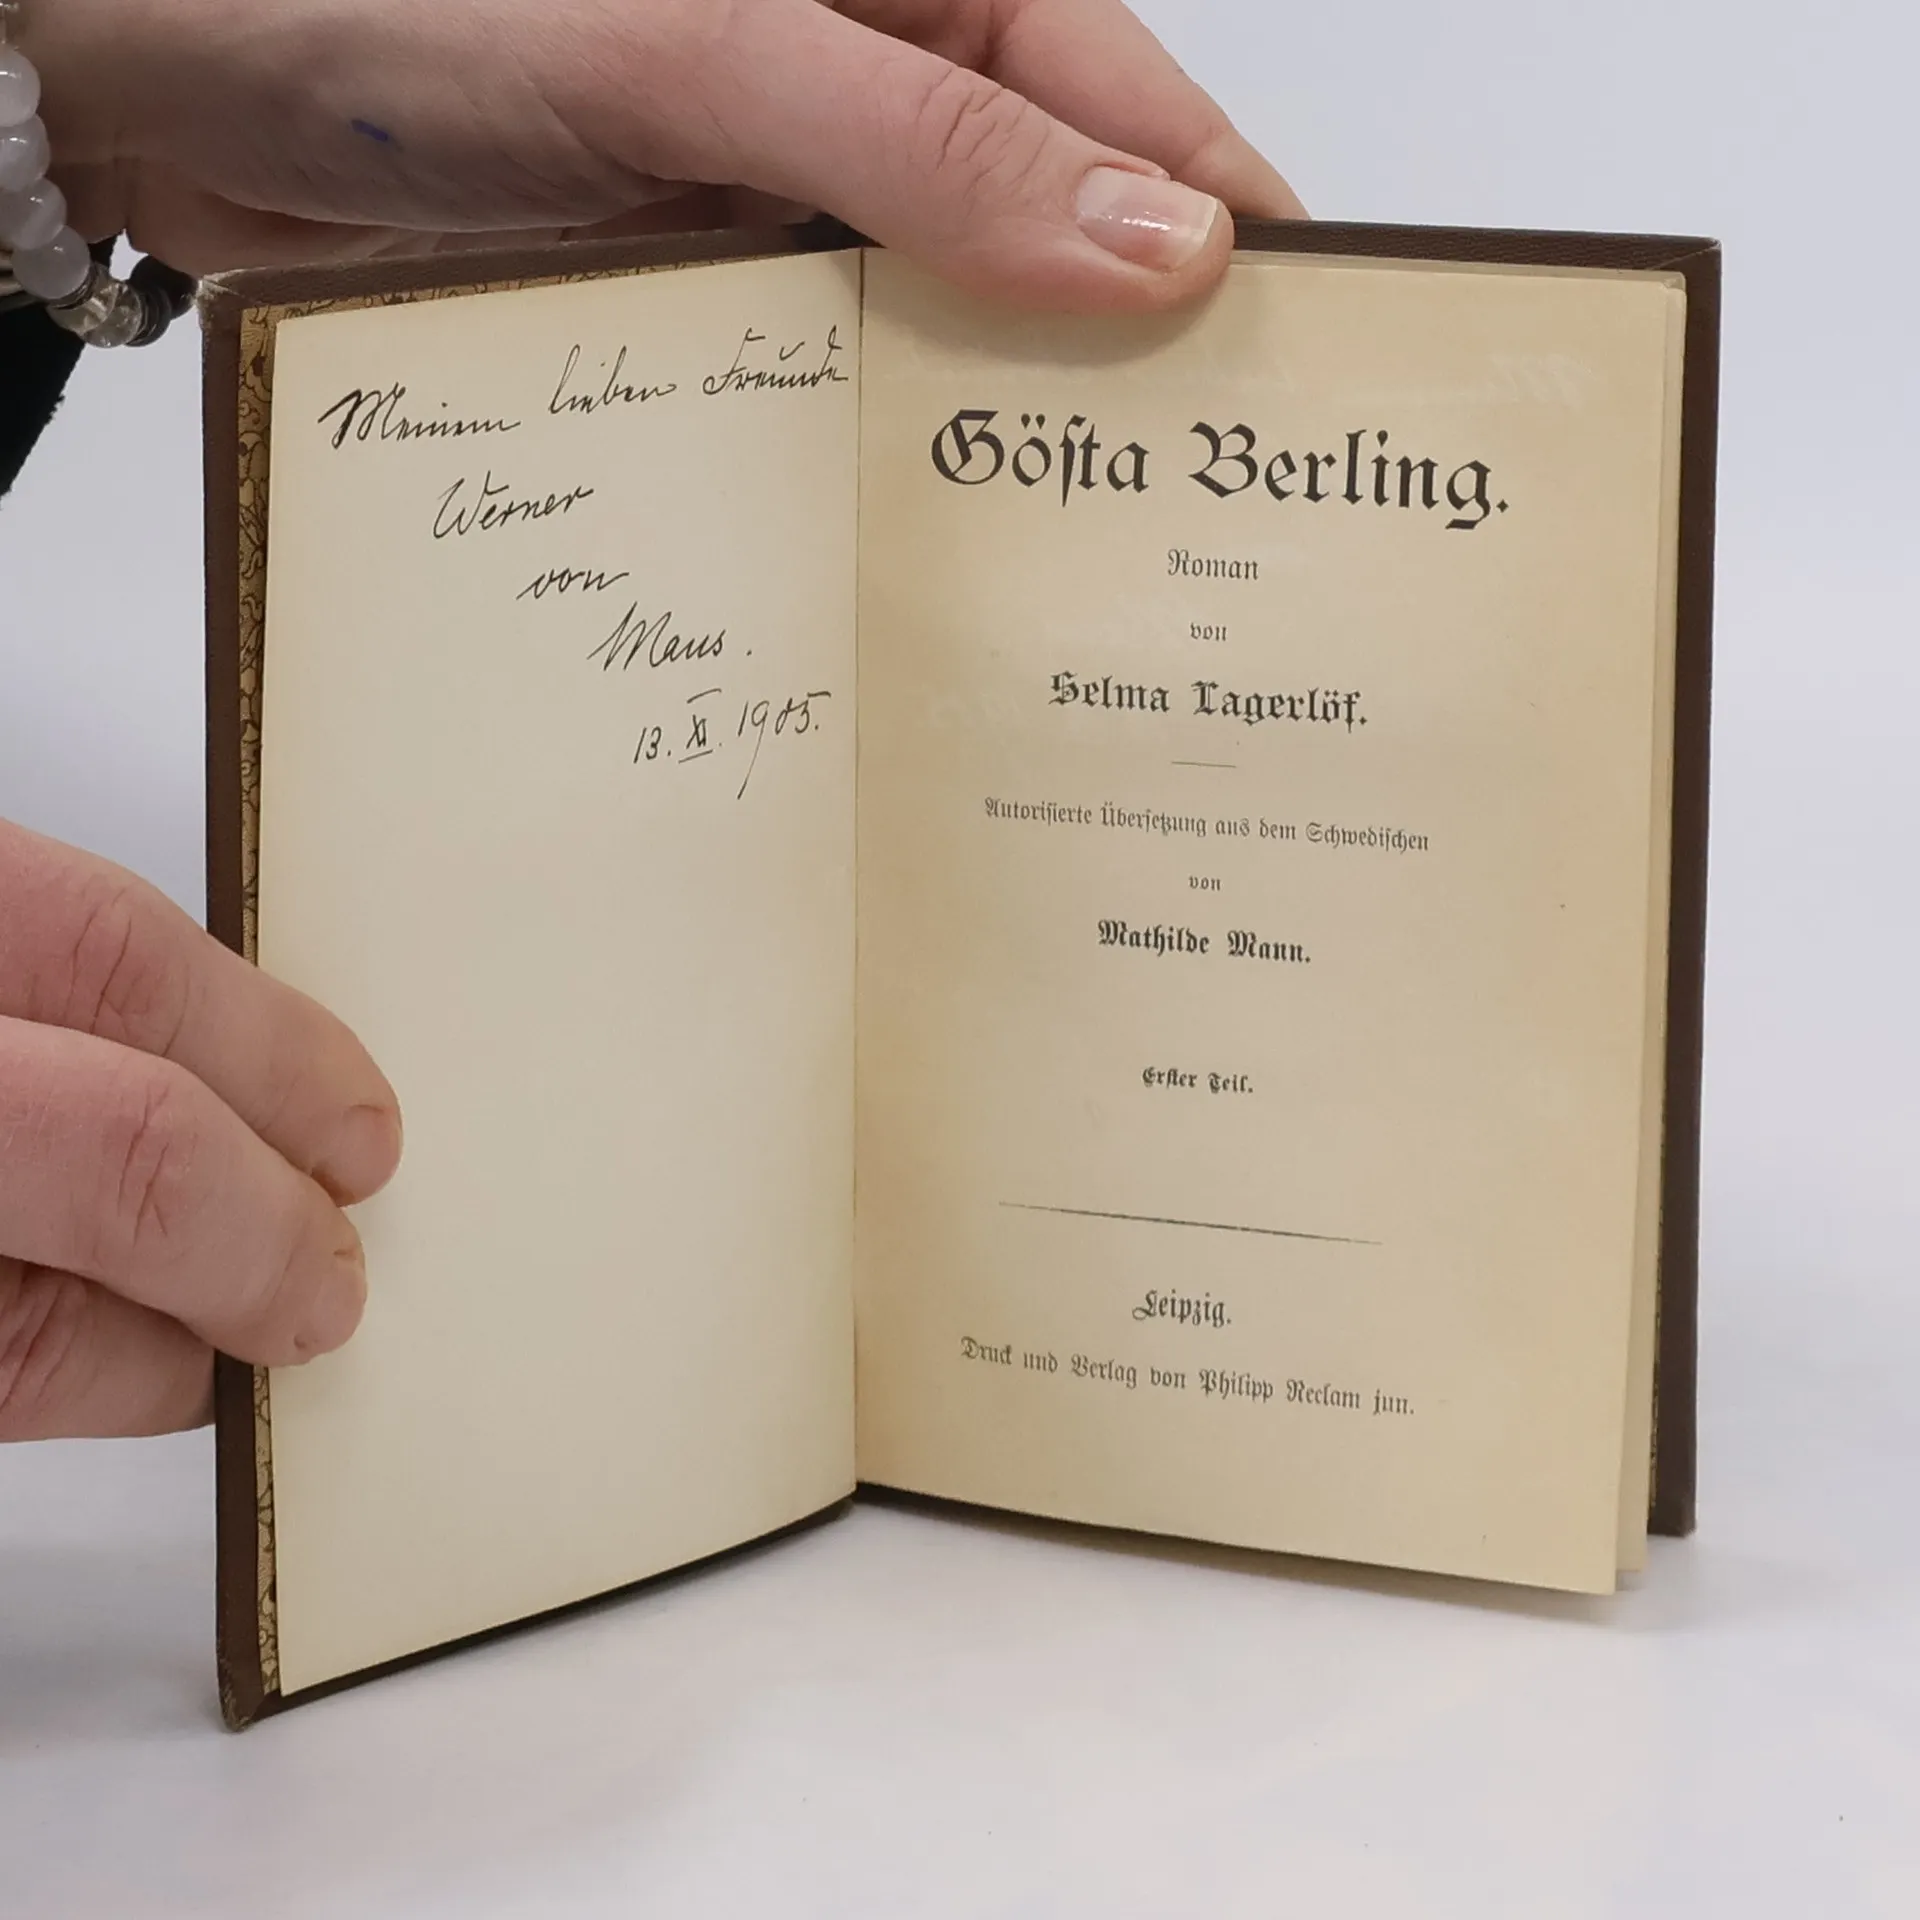 Meinem lieben Freunde
Werner
von
Maus.
13. XI. 1905.
Göſta Berling.
Roman
von
Selma Lagerlöf.
Autoriſierte Überſetzung aus dem Schwediſchen
von
Mathilde Mann.
Erſter Teil.
Leipzig.
Druck und Verlag von Philipp Reclam jun.